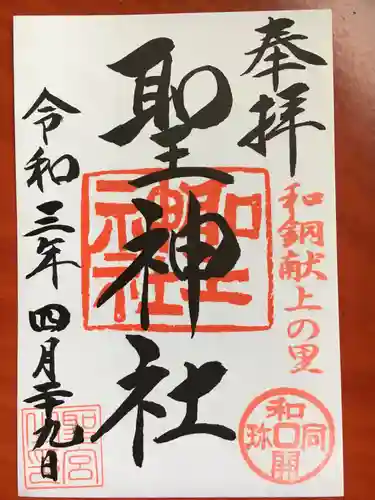 奉拝
和銅献上の里
聖神社
令和三年四月二十九日
和同開珎
聖宮